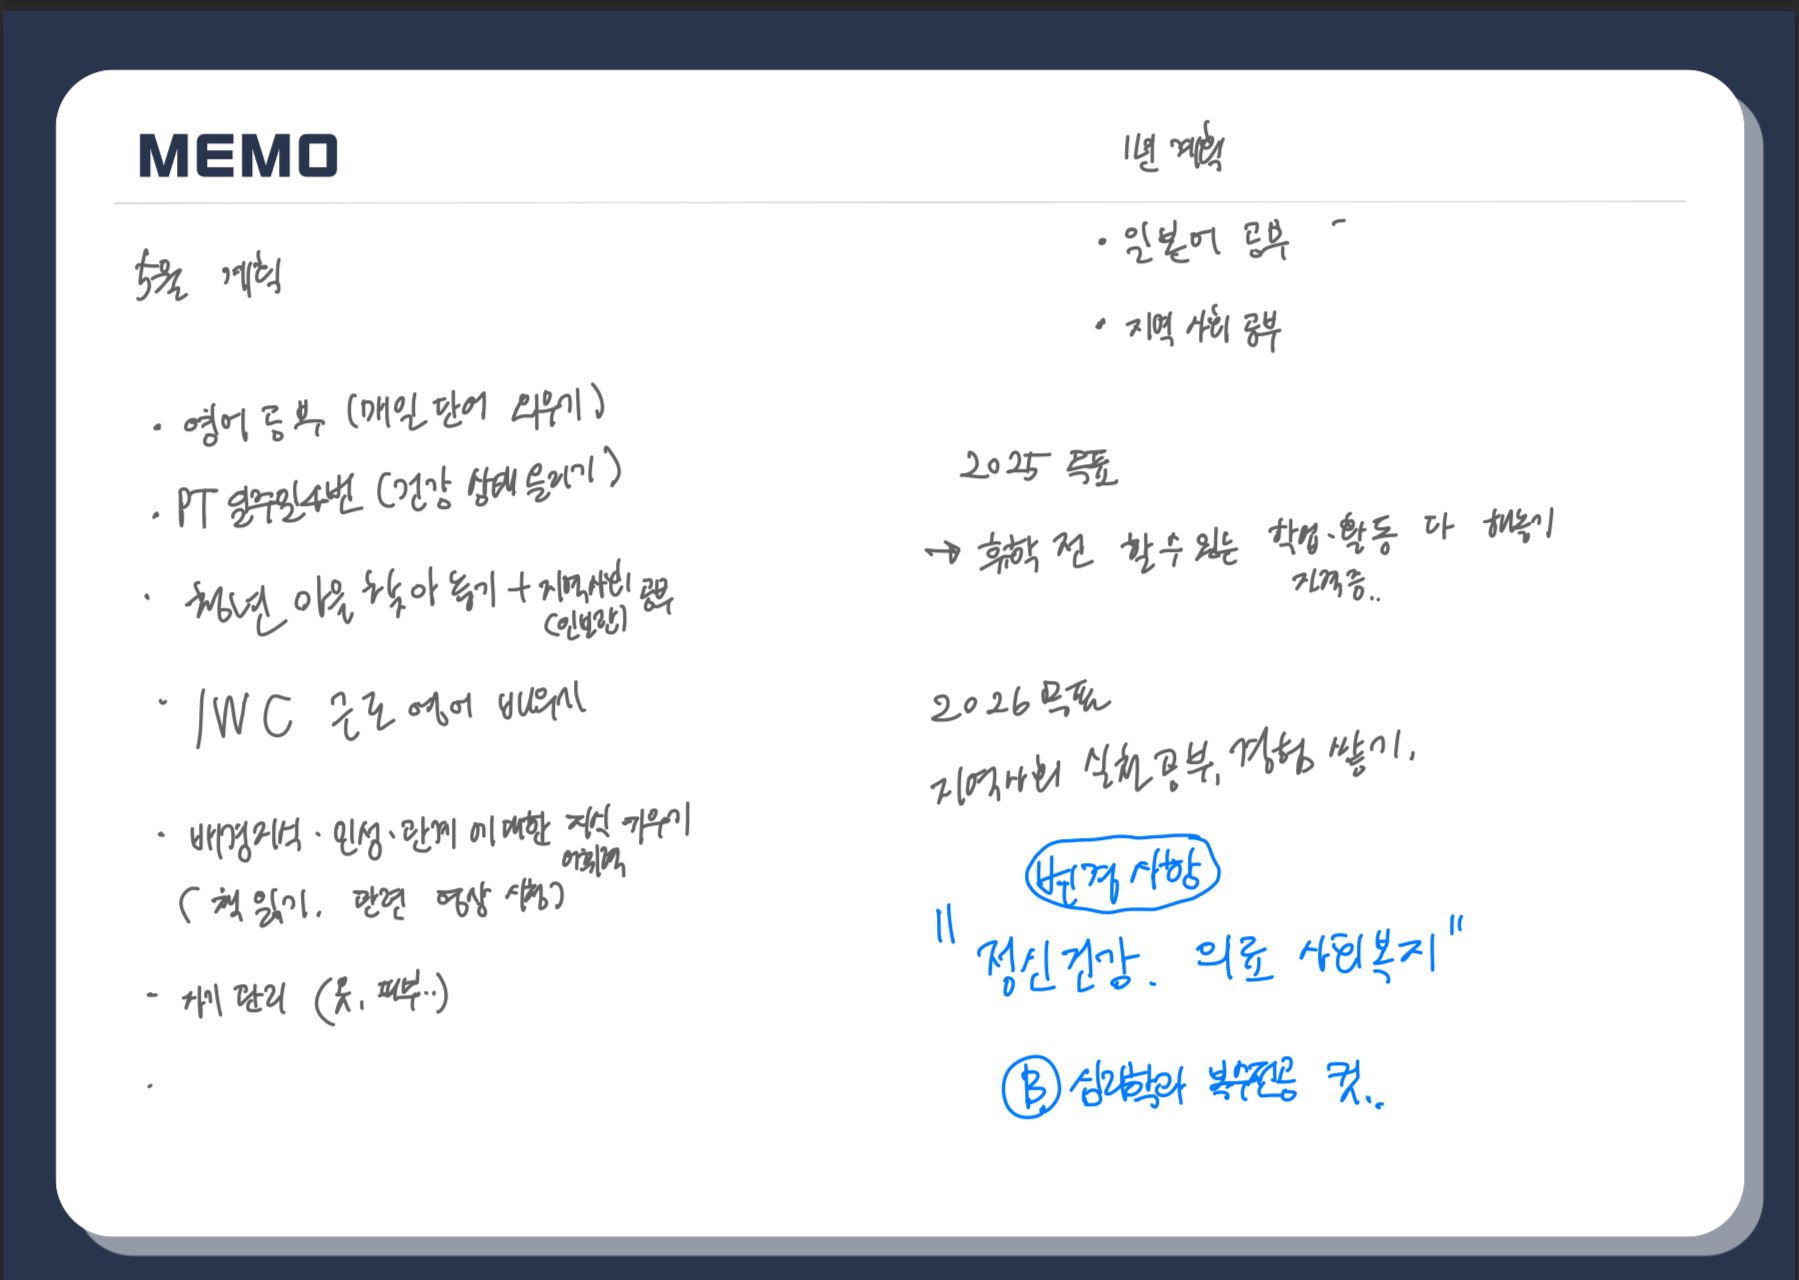 MEMO
5월 계획
· 영어공부 (매일 단어 외우기)
· PT 일주일 4번 (건강 상태 늘리기)
· 청년 마을 찾아 놓기 + 지역사회 공부
(인보관)
· IWC 근로 영어 배우기
· 배경지식·인성·관계에 대한 지식 키우기
어휘력
( 책 읽기. 관련 영상 시청)
- 자기 관리 (옷, 피부..)
·
1년 계획
· 일본어 공부 -
· 지역사회 공부
2025 목표
→ 휴학 전 할 수 있는 학업·활동 다 해놓기
자격증..
2026 목표
지역사회 실천 공부, 경험 쌓기.
변경 사항
" 정신건강. 의료 사회복지"
B 심리학과 복수전공 컷..